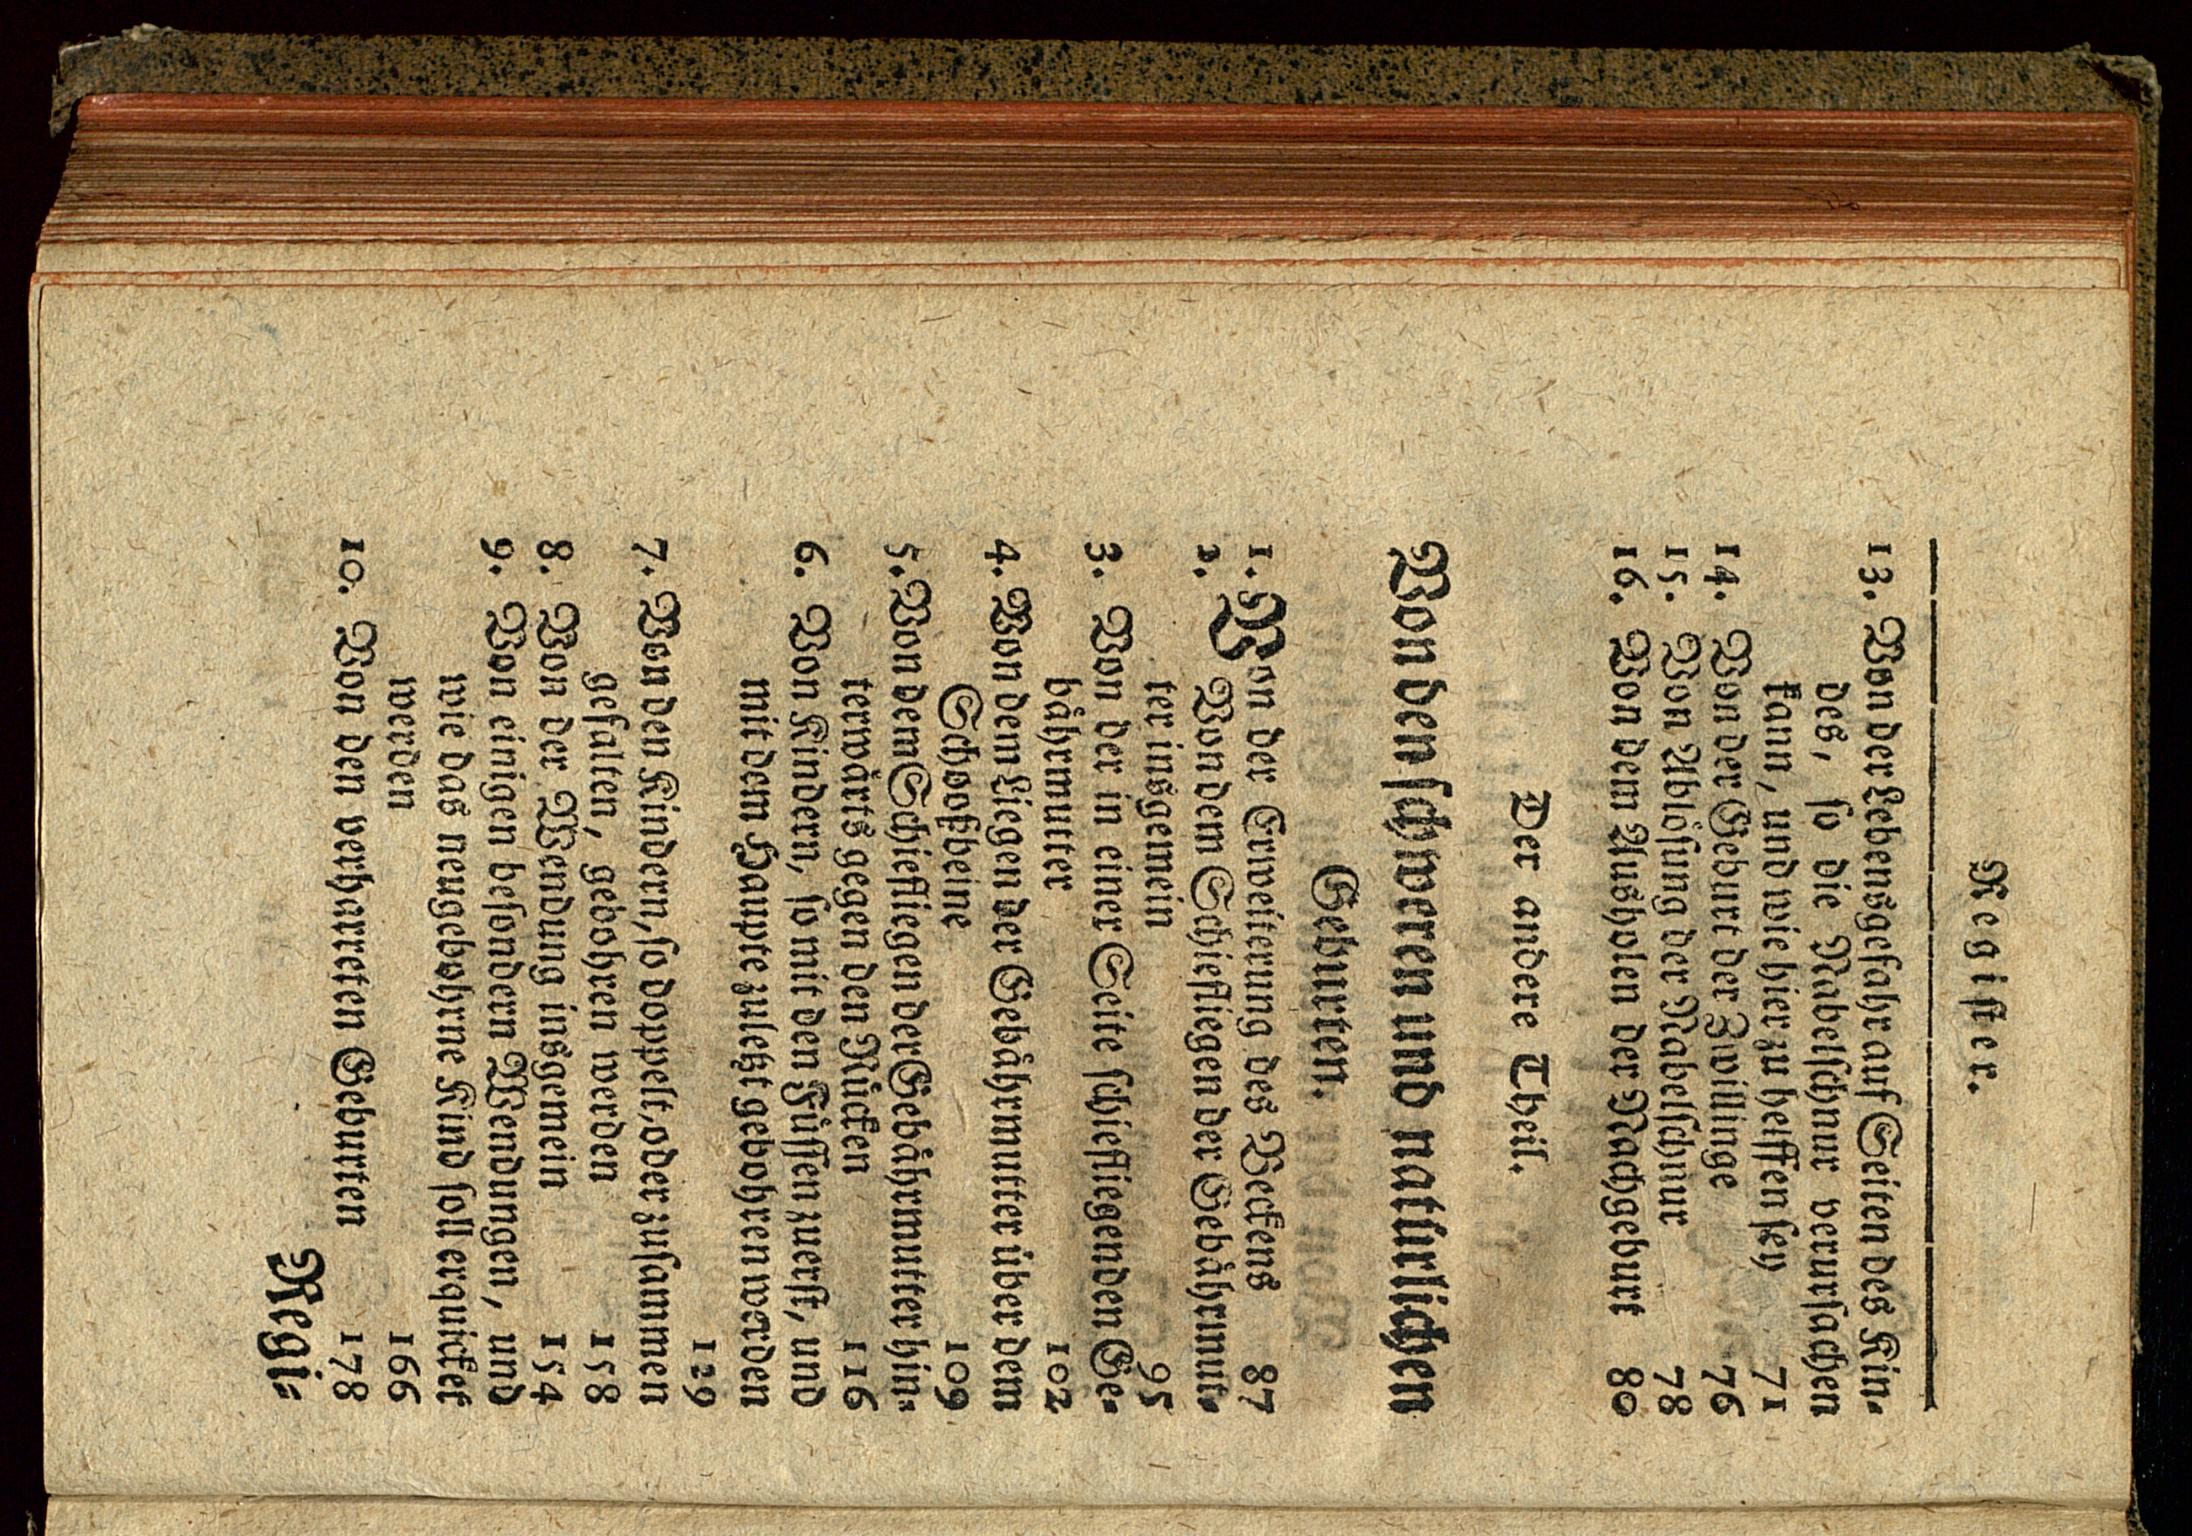 Register.
13. Von der Lebensgefahr auf Seiten des Kin⸗
des, so die Nabelschnur verursachen
kann, und wie hier zu helffen sey 71
14. Von der Geburt der Zwillinge 76
15. Von Ablösung der Nabelschnur 78
16. Von dem Ausholen der Nachgeburt 80
Der andere Theil.
Von den schweren und natürlichen
Geburten.
1. Von der Erweiterung des Beckens 87
2. Von dem Schiefliegen der Gebährmut⸗
ter insgemein 95
3. Von der in einer Seite schiefliegenden Ge⸗
bährmutter 102
4. Von dem Liegen der Gebährmutter über dem
Schooßbeine 109
5. Von dem Schiefliegen der Gebährmutter hin⸗
terwärts gegen den Rücken 116
6. Von Kindern, so mit den Füssen zuerst, und
mit dem Haupte zuletzt gebohren werden
129
7. Von den Kindern, so doppelt, oder zusammen
gefalten, gebohren werden 158
8. Von der Wendung insgemein 154
9. Von einigen besondern Wendungen, und
wie das neugebohrne Kind soll erquicket
werden 166
10. Von den verharreten Geburten 178
Regi⸗